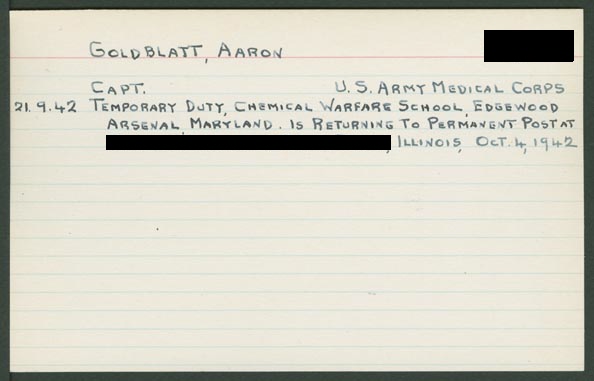 GOLDBLATT, AARON
CAPT. U.S. ARMY MEDICAL CORPS
21.9.42 TEMPORARY DUTY, CHEMICAL WARFARE SCHOOL, EDGEWOOD
ARSENAL, MARYLAND. IS RETURNING TO PERMANENT POST AT
, ILLINOIS, OCT. 4, 1942